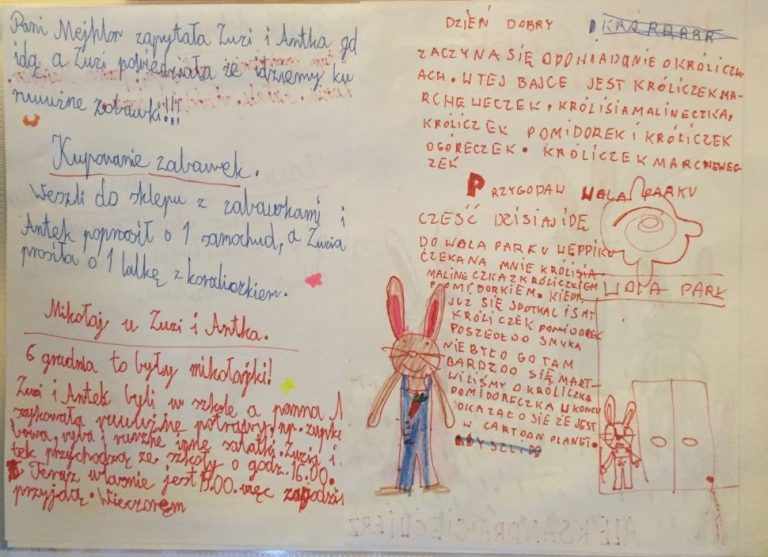 Pani Mejhlor zapytała Zuzi i Antka gd
idą a Zuzi powiedziała że idziemy ku
ruuużne zabawki!!!
Kupowanie zabawek.
Weszli do sklepu z zabawkami i
Antek poprosił o 1 samochud, a Zuzia
prosiła o 1 lalkę z koraliczkiem.
Mikołaj u Zuzi i Antka.
6 grudnia to były mikołajki!
Zuzi i Antek byli w szkole a panna A
szykowała ruuużne potrawy np. zupke
bowa, ryba i ruszne inne sałatki. Zuzia i
tek przychodzą ze szkoły o godz. 16.00.
Teraz właśnie jest 15.00. więc za godzin
przyjdą. Wieczorem
DZIEŃ DOBRY
ZACZYNA SIĘ OPOWIADANIE O KRÓLICZK
ACH. W TEJ BAJCE JEST KRÓLICZEK MA-
RCHEWECZEK, KRÓLISIA MALINECZKA,
KRÓLICZEK POMIDOREK I KRÓLICZEK
OGÓRECZEK. KRÓLICZEK MARCHEWEC
ZEK
PRZYGODA W WOLA PARKU
CZEŚĆ DZISIAJ IDĘ
DO WOLA PARKU WEPPIKU
CZEKA NA MNIE KRÓLISIA
MALINECZKA Z KRÓLICZKIEM
POMIDORKIEM. KIEDY
JUŻ SIĘ SPOTKALIŚMY
KRÓLICZEK POMIDOREK
POSZEDŁ DO SMYKA
NIE BYŁO GO TAM
BARDZO SIĘ MART-
WILIŚMY O KRÓLICZKA
POMIDORECZKA W KOŃCU
OKAZAŁO SIĘ ŻE JEST
W CARTOON PLANET.
WOLA PARK